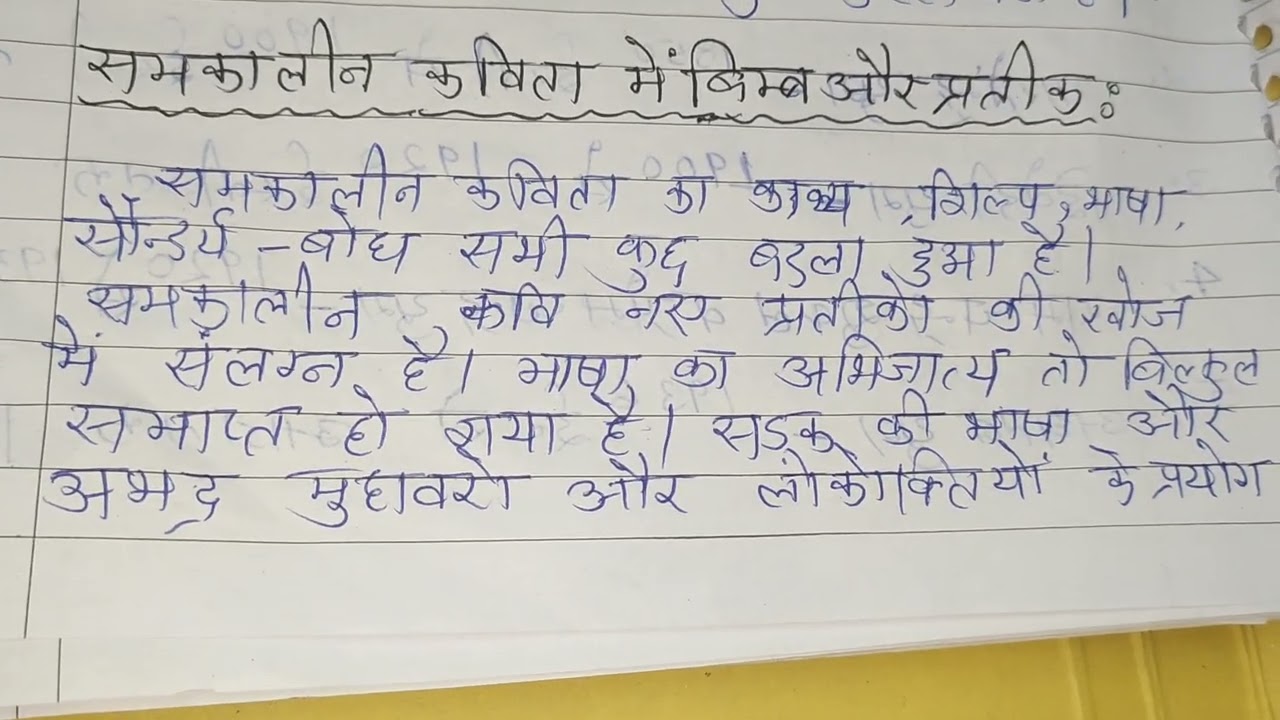 समकालीन कविता में बिम्ब और प्रतीक :
समकालीन कविता का काव्य, शिल्प, भाषा,
सौन्दर्य - बोध सभी कुछ बदला हुआ है।
समकालीन कवि नए प्रतीको की खोज
में संलग्न है। भाषा का अभिजात्य तो बिल्कुल
समाप्त हो गया है। सड़क की भाषा और
अभद्र मुहावरो और लोकोक्तियों के प्रयोग